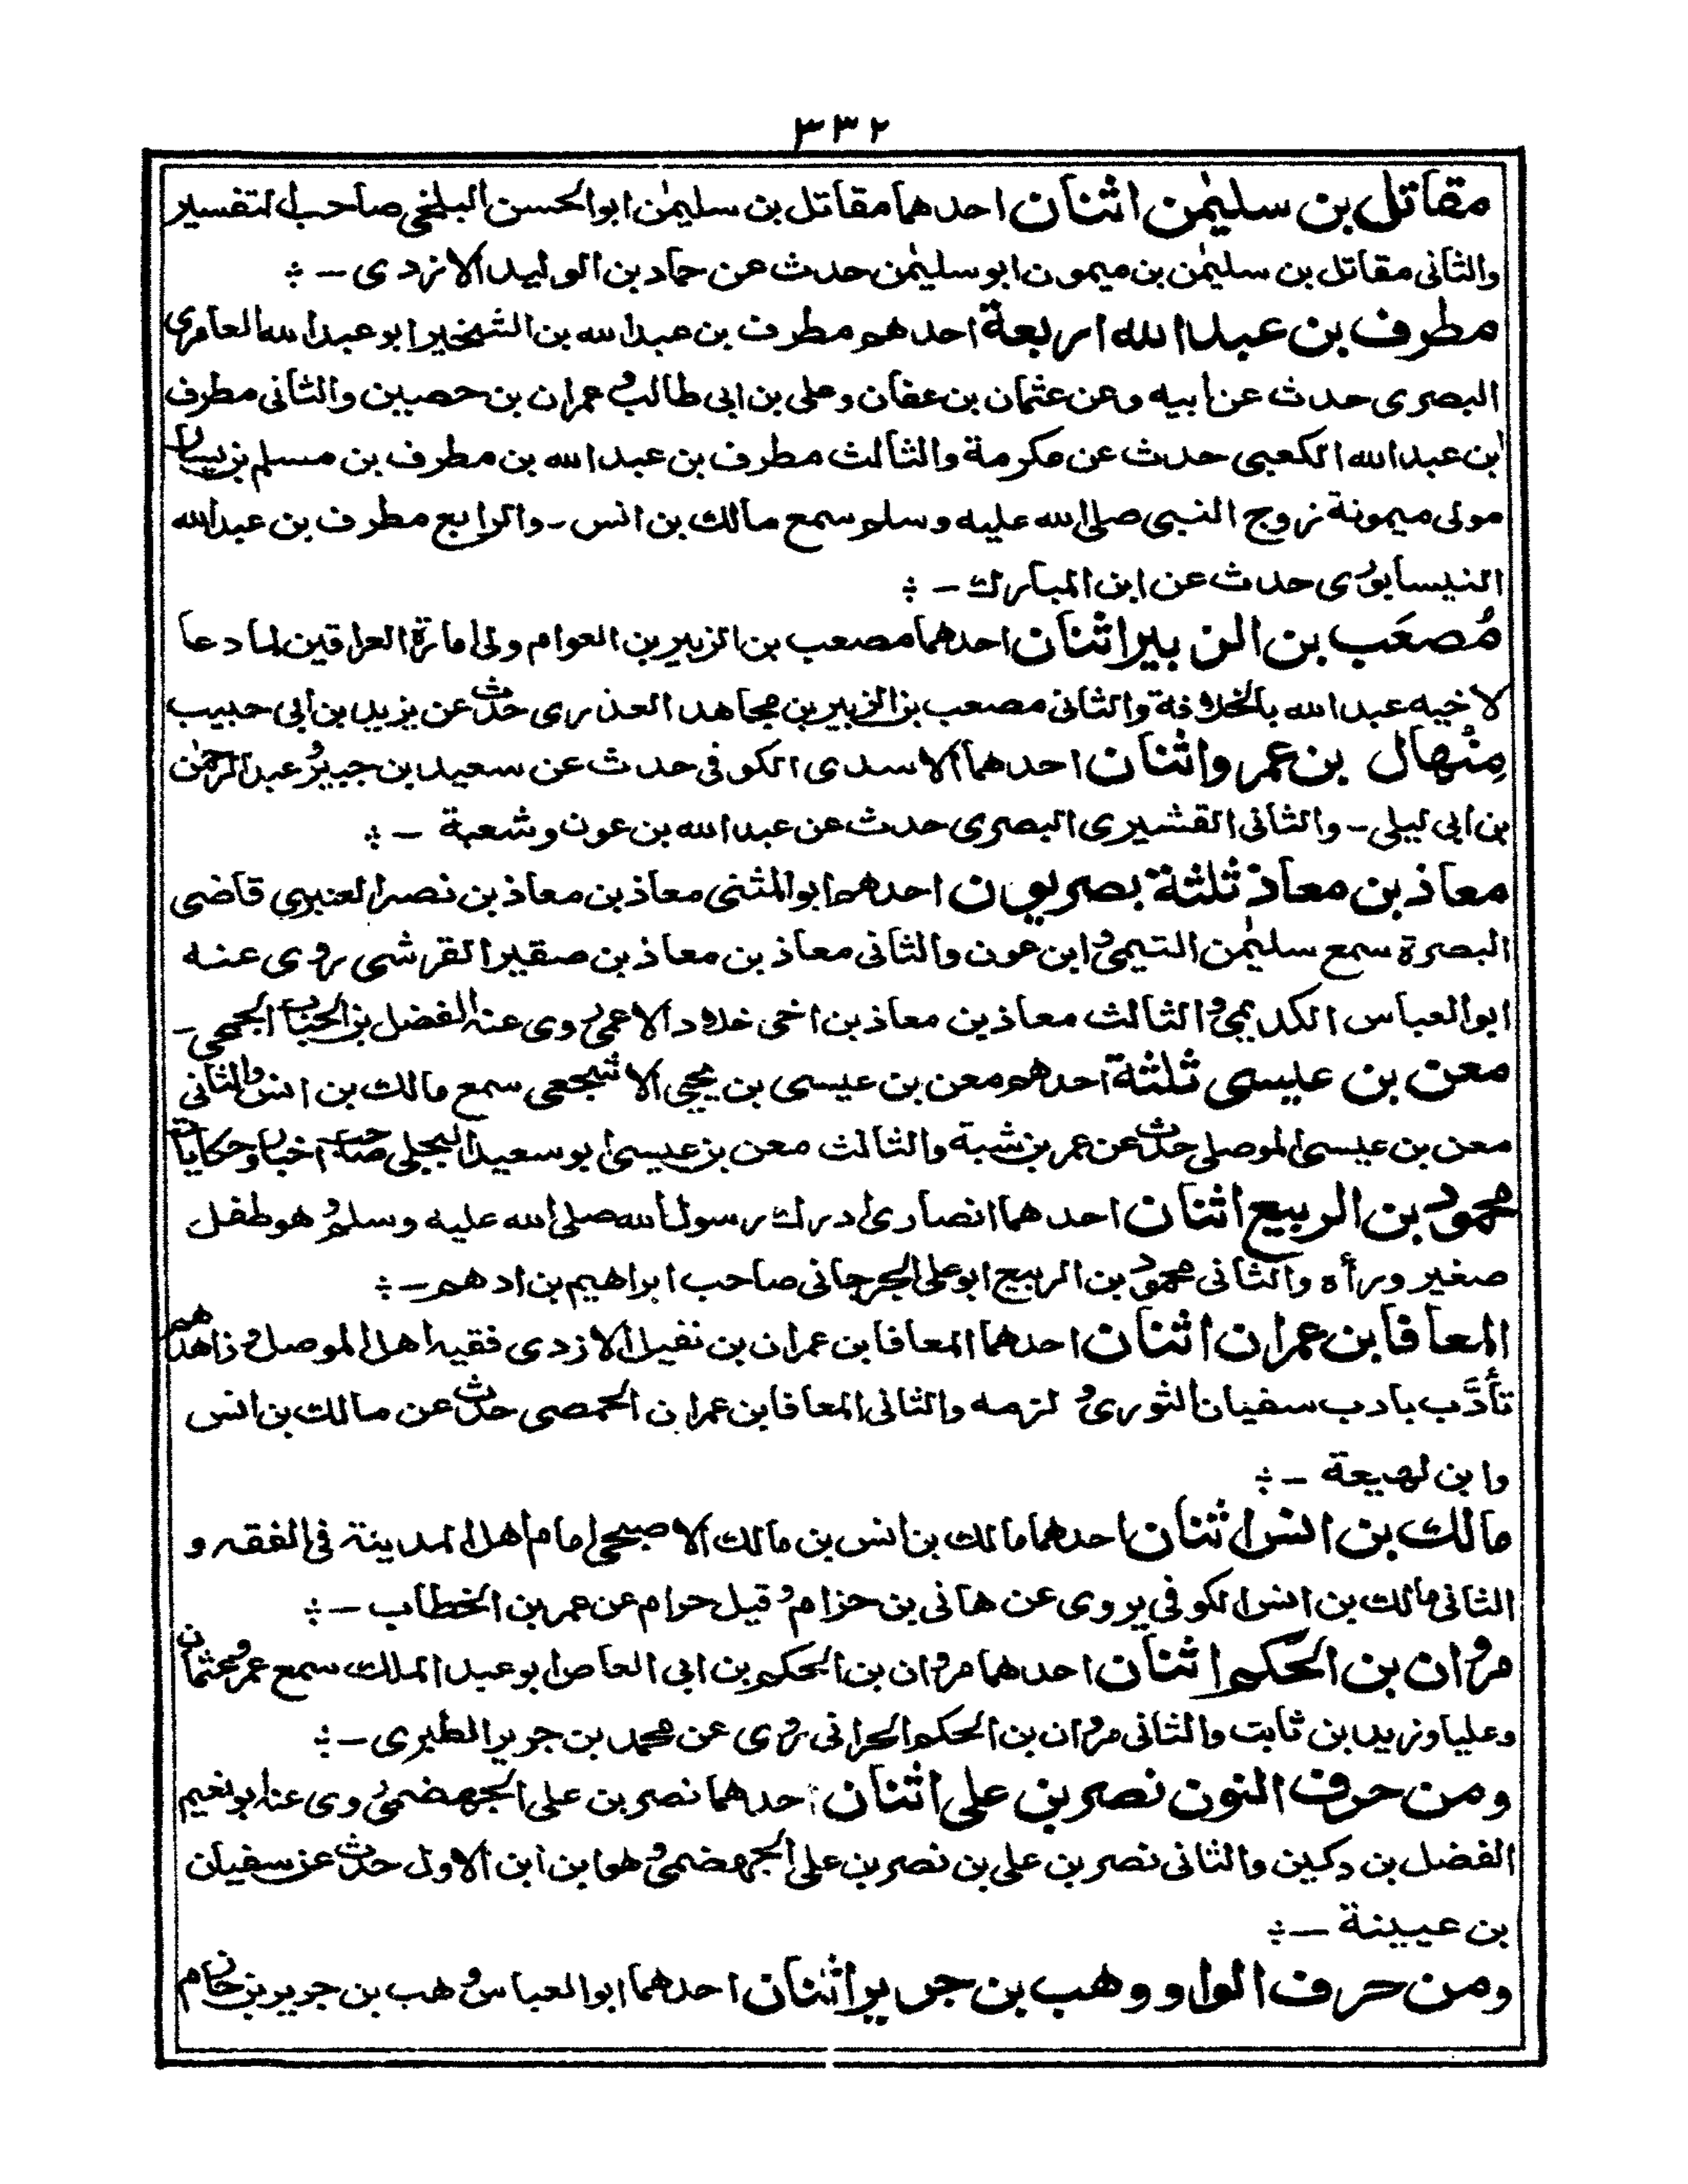 ٣٣٢
مقاتل بن سليمٰن اثنان احدهما مقاتل بن سليمٰن ابوالحسن البلخي صاحب التفسير
والثانى مقاتل بن سليمٰن بن ميمون ابو سليمٰن حدث عن حماد بن الوليد الازدى - ؞
مطرف بن عبدالله اربعة احدهم مطرف بن عبدالله بن الشخير ابو عبدالله العامرى
البصرى حدث عن ابيه وعن عثمان بن عفان وعلى بن ابى طالب وعمران بن حصين والثانى مطرف
بن عبدالله الكعبى حدث عن عكرمة والثالث مطرف بن عبدالله بن مطرف بن مسلم بن يسار
مولى ميمونة زوج النبى صلى الله عليه وسلم سمع مالك بن انس - والرابع مطرف بن عبدالله
النيسابورى حدث عن ابن المبارك - ؞
مُصعَب بن الزبير اثنان احدهما مصعب بن الزبير بن العوام ولى امارة العراقين لما دعا
لاخيه عبدالله بالخلافة والثانى مصعب بن الزبير بن مجاهد العذرى حدث عن يزيد بن ابى حبيب
مِنْهال بن عمرو اثنان احدهما الاسدى الكوفى حدث عن سعيد بن جبير وعبدالرحمٰن
بن ابى ليلى - والثانى القشيرى البصرى حدث عن عبدالله بن عون وشعبة - ؞
معاذ بن معاذ ثلثة بصريون احدهم ابوالمثنى معاذ بن معاذ بن نصر العنبرى قاضى
البصرة سمع سليمٰن التيمى وابن عون والثانى معاذ بن معاذ بن صقير القرشى روى عنه
ابوالعباس الكديمى والثالث معاذ بن معاذ بن اخى خلاد الاعمى روى عنه الفضل بن الحباب الجمحى -
معن بن عيسى ثلثة احدهم معن بن عيسى بن يحيى الاشجعى سمع مالك بن انس والثانى
معن بن عيسى الموصلى حدث عن عمر بن شبة والثالث معن بن عيسى ابو سعيد البجلى صاحب اخبار وحكايات
محمود بن الربيع اثنان احدهما انصارى ادرك رسول الله صلى الله عليه وسلم وهو طفل
صغير ورأه والثانى محمود بن الربيع ابو على الجرجانى صاحب ابراهيم بن ادهم - ؞
المعافا بن عمران اثنان احدهما المعافا بن عمران بن نفيل الازدى فقيه اهل الموصل وزاهدهم
تأدَّب بادب سفيان الثورى ولزمه والثانى المعافا بن عمران الحمصى حدث عن مالك بن انس
وابن لهيعة - ؞
مالك بن انس اثنان احدهما مالك بن انس بن مالك الاصبحى امام اهل المدينة فى الفقه و
الثانى مالك بن انس الكوفى يروى عن هانى بن حزام وقيل حرام عن عمر بن الخطاب - ؞
مروان بن الحكم اثنان احدهما مروان بن الحكم بن ابى العاص ابو عبد الملك سمع عمر وعثمان
وعليا وزيد بن ثابت والثانى مروان بن الحكم الحرانى روى عن محمد بن جرير الطبرى - ؞
ومن حرف النون نصر بن على اثنان احدهما نصر بن على الجهضمى روى عنه ابو نعيم
الفضل بن دكين والثانى نصر بن على بن نصر بن على الجهضمى وهو ابن ابن الاول حدث عن سفيان
بن عيينة - ؞
ومن حرف الواو وهب بن جرير اثنان احدهما ابوالعباس وهب بن جرير بن حازم